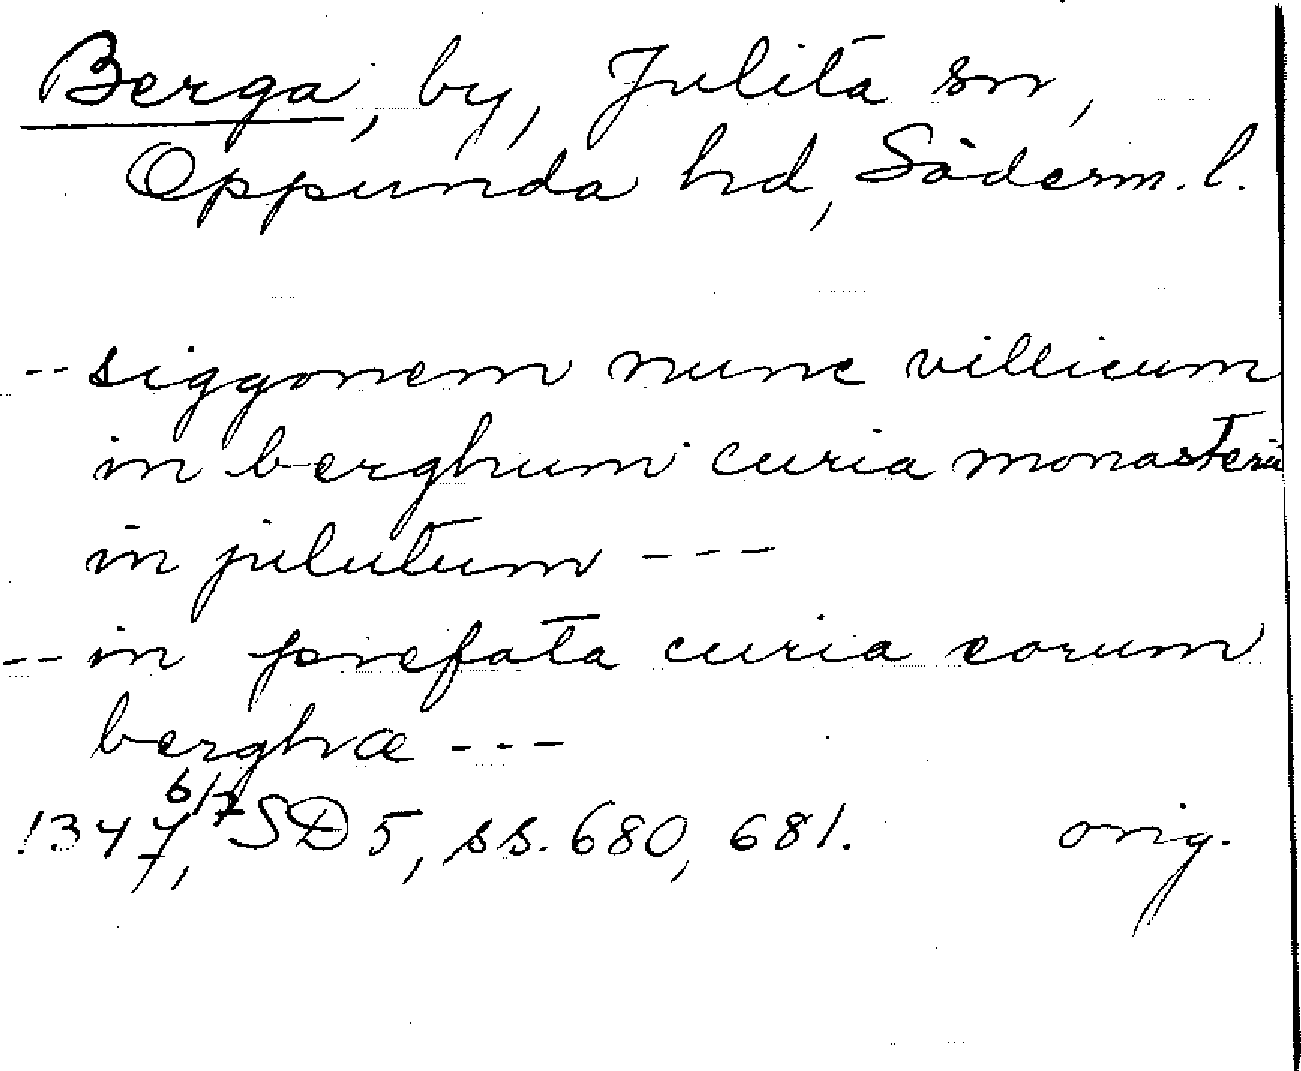 Berga, by, Julita sn,
Oppunda hd, Söderm. l.
-- siggonem nunc villicum
in berghum curia monasterii
in julutum ---
-- in prefata curia eorum
berghæ ---
1347 6/7, SD 5, ss. 680, 681. orig.